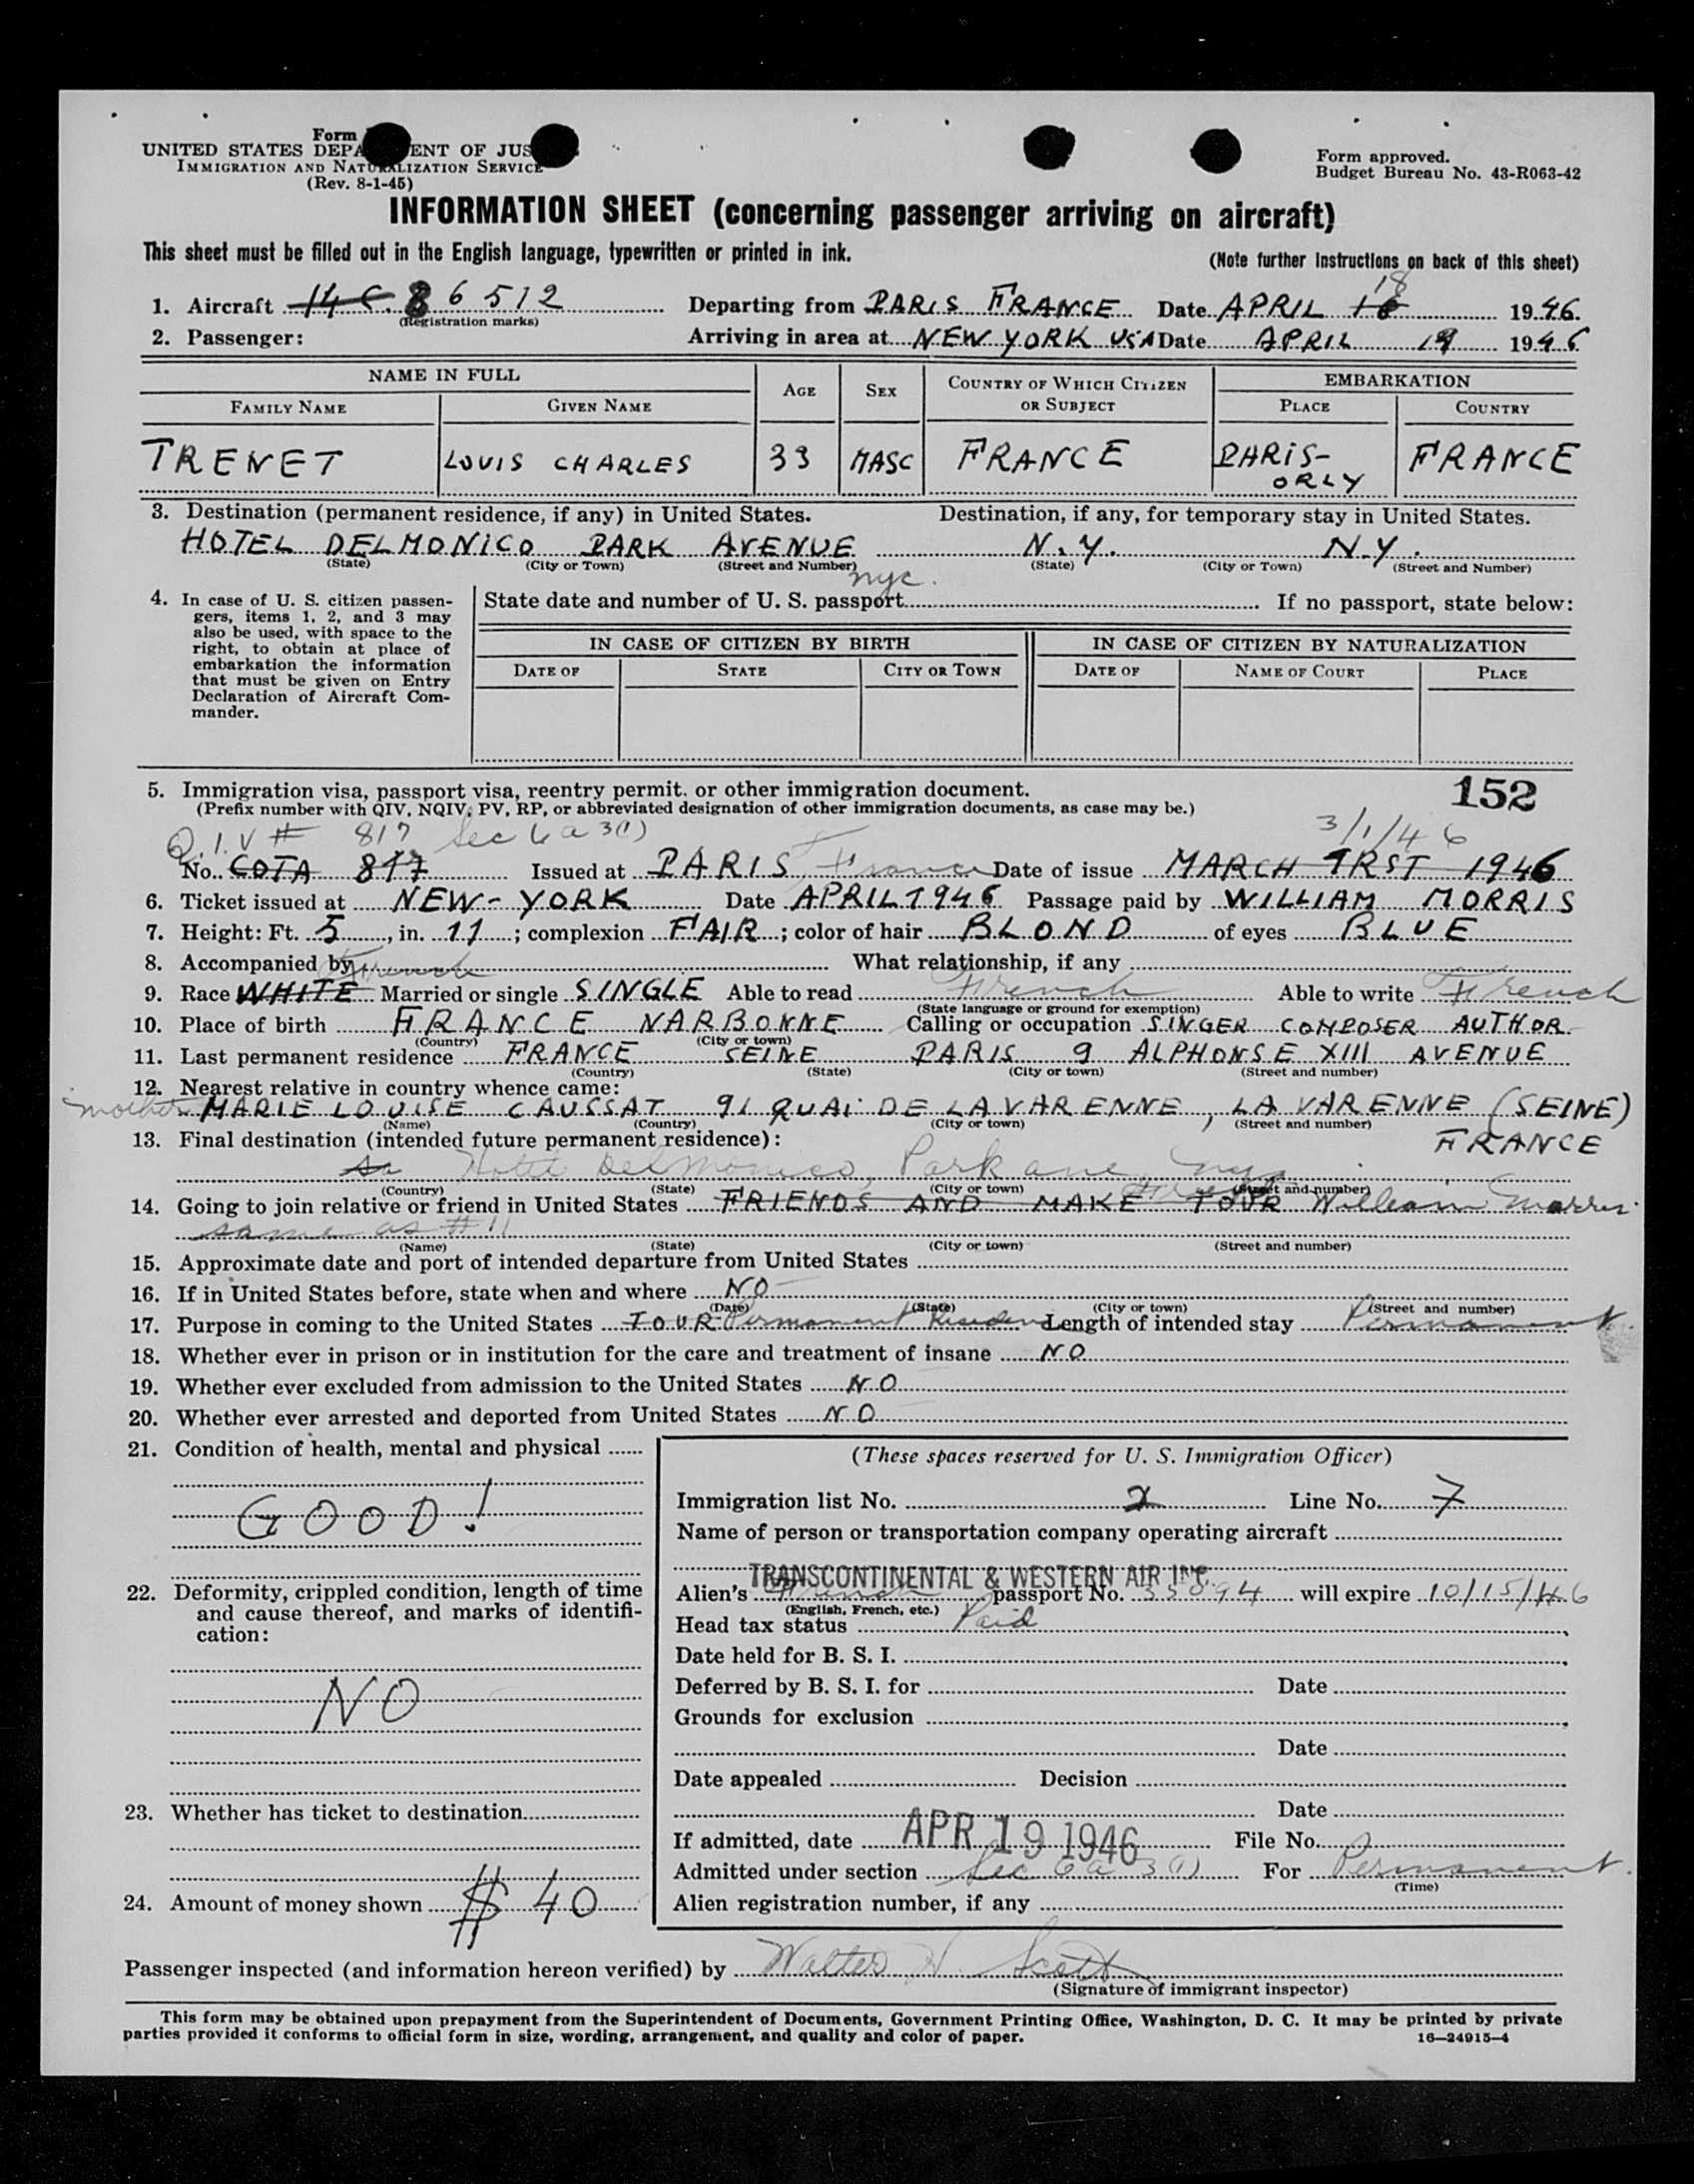 Form
UNITED STATES DEPA ENT OF JUS
IMMIGRATION AND NATURALIZATION SERVICE
(Rev. 8-1-45)
Form approved.
Budget Bureau No. 43-R063-42
INFORMATION SHEET (concerning passenger arriving on aircraft)
This sheet must be filled out in the English language, typewritten or printed in ink.
(Note further instructions on back of this sheet)
18
1. Aircraft 14 C. 86512 Departing from PARIS FRANCE Date APRIL 16 1946.
(Registration marks)
2. Passenger: Arriving in area at NEW YORK USA Date APRIL 19 1946
NAME IN FULL AGE SEX COUNTRY OF WHICH CITIZEN OR SUBJECT EMBARKATION
FAMILY NAME GIVEN NAME PLACE COUNTRY
TRENET LOUIS CHARLES 33 MASC FRANCE PARIS- ORLY FRANCE
3. Destination (permanent residence, if any) in United States. Destination, if any, for temporary stay in United States.
HOTEL DELMONICO PARK AVENUE N.Y. N.Y.
(State) (City or Town) (Street and Number) (State) (City or Town) (Street and Number)
nyc.
4. In case of U. S. citizen passengers, items 1, 2, and 3 may also be used, with space to the right, to obtain at place of embarkation the information that must be given on Entry Declaration of Aircraft Commander.
State date and number of U. S. passport If no passport, state below:
IN CASE OF CITIZEN BY BIRTH IN CASE OF CITIZEN BY NATURALIZATION
DATE OF STATE CITY OR TOWN DATE OF NAME OF COURT PLACE
152
5. Immigration visa, passport visa, reentry permit. or other immigration document.
(Prefix number with QIV, NQIV, PV, RP, or abbreviated designation of other immigration documents, as case may be.)
Q.I.V # 817 Sec 6 a 3(1) 3/1/46
No. COTA 817 Issued at PARIS, France Date of issue MARCH 1RST 1946
6. Ticket issued at NEW-YORK Date APRIL 1946 Passage paid by WILLIAM MORRIS
7. Height: Ft. 5, in. 11; complexion FAIR; color of hair BLOND of eyes BLUE
8. Accompanied by What relationship, if any
French
9. Race WHITE Married or single SINGLE Able to read French Able to write French
(State language or ground for exemption)
10. Place of birth FRANCE NARBONNE Calling or occupation SINGER COMPOSER AUTHOR.
(Country) (City or town)
11. Last permanent residence FRANCE SEINE PARIS 9 ALPHONSE XIII AVENUE
(Country) (State) (City or town) (Street and number)
12. Nearest relative in country whence came:
mother MARIE LOUISE CAUSSAT 91 QUAI DE LA VARENNE, LA VARENNE (SEINE)
(Name) (Country) (City or town) (Street and number)
FRANCE
13. Final destination (intended future permanent residence):
Hotel Delmonico, Park ave, nyc
(Country) (State) (City or town) (Street and number)
14. Going to join relative or friend in United States FRIENDS AND MAKE TOUR William Morris
same as # 11
(Name) (State) (City or town) (Street and number)
15. Approximate date and port of intended departure from United States
16. If in United States before, state when and where NO
(Date) (State) (City or town) (Street and number)
17. Purpose in coming to the United States TOUR Permanent Residen Length of intended stay Permanent.
18. Whether ever in prison or in institution for the care and treatment of insane NO
19. Whether ever excluded from admission to the United States NO
20. Whether ever arrested and deported from United States NO
21. Condition of health, mental and physical
GOOD!
22. Deformity, crippled condition, length of time and cause thereof, and marks of identification:
NO
23. Whether has ticket to destination
24. Amount of money shown $ 40
(These spaces reserved for U. S. Immigration Officer)
Immigration list No. 2 Line No. 7
Name of person or transportation company operating aircraft
TRANSCONTINENTAL & WESTERN AIR INC.
Alien's French passport No. 35094 will expire 10/15/46
(English, French, etc.)
Head tax status Paid
Date held for B. S. I.
Deferred by B. S. I. for Date
Grounds for exclusion
Date
Date appealed Decision
Date
If admitted, date APR 19 1946 File No.
Admitted under section Sec 6 a 3 (1) For Permanent.
(Time)
Alien registration number, if any
Passenger inspected (and information hereon verified) by Walter H. Scott
(Signature of immigrant inspector)
This form may be obtained upon prepayment from the Superintendent of Documents, Government Printing Office, Washington, D. C. It may be printed by private
parties provided it conforms to official form in size, wording, arrangement, and quality and color of paper. 16—24915-4